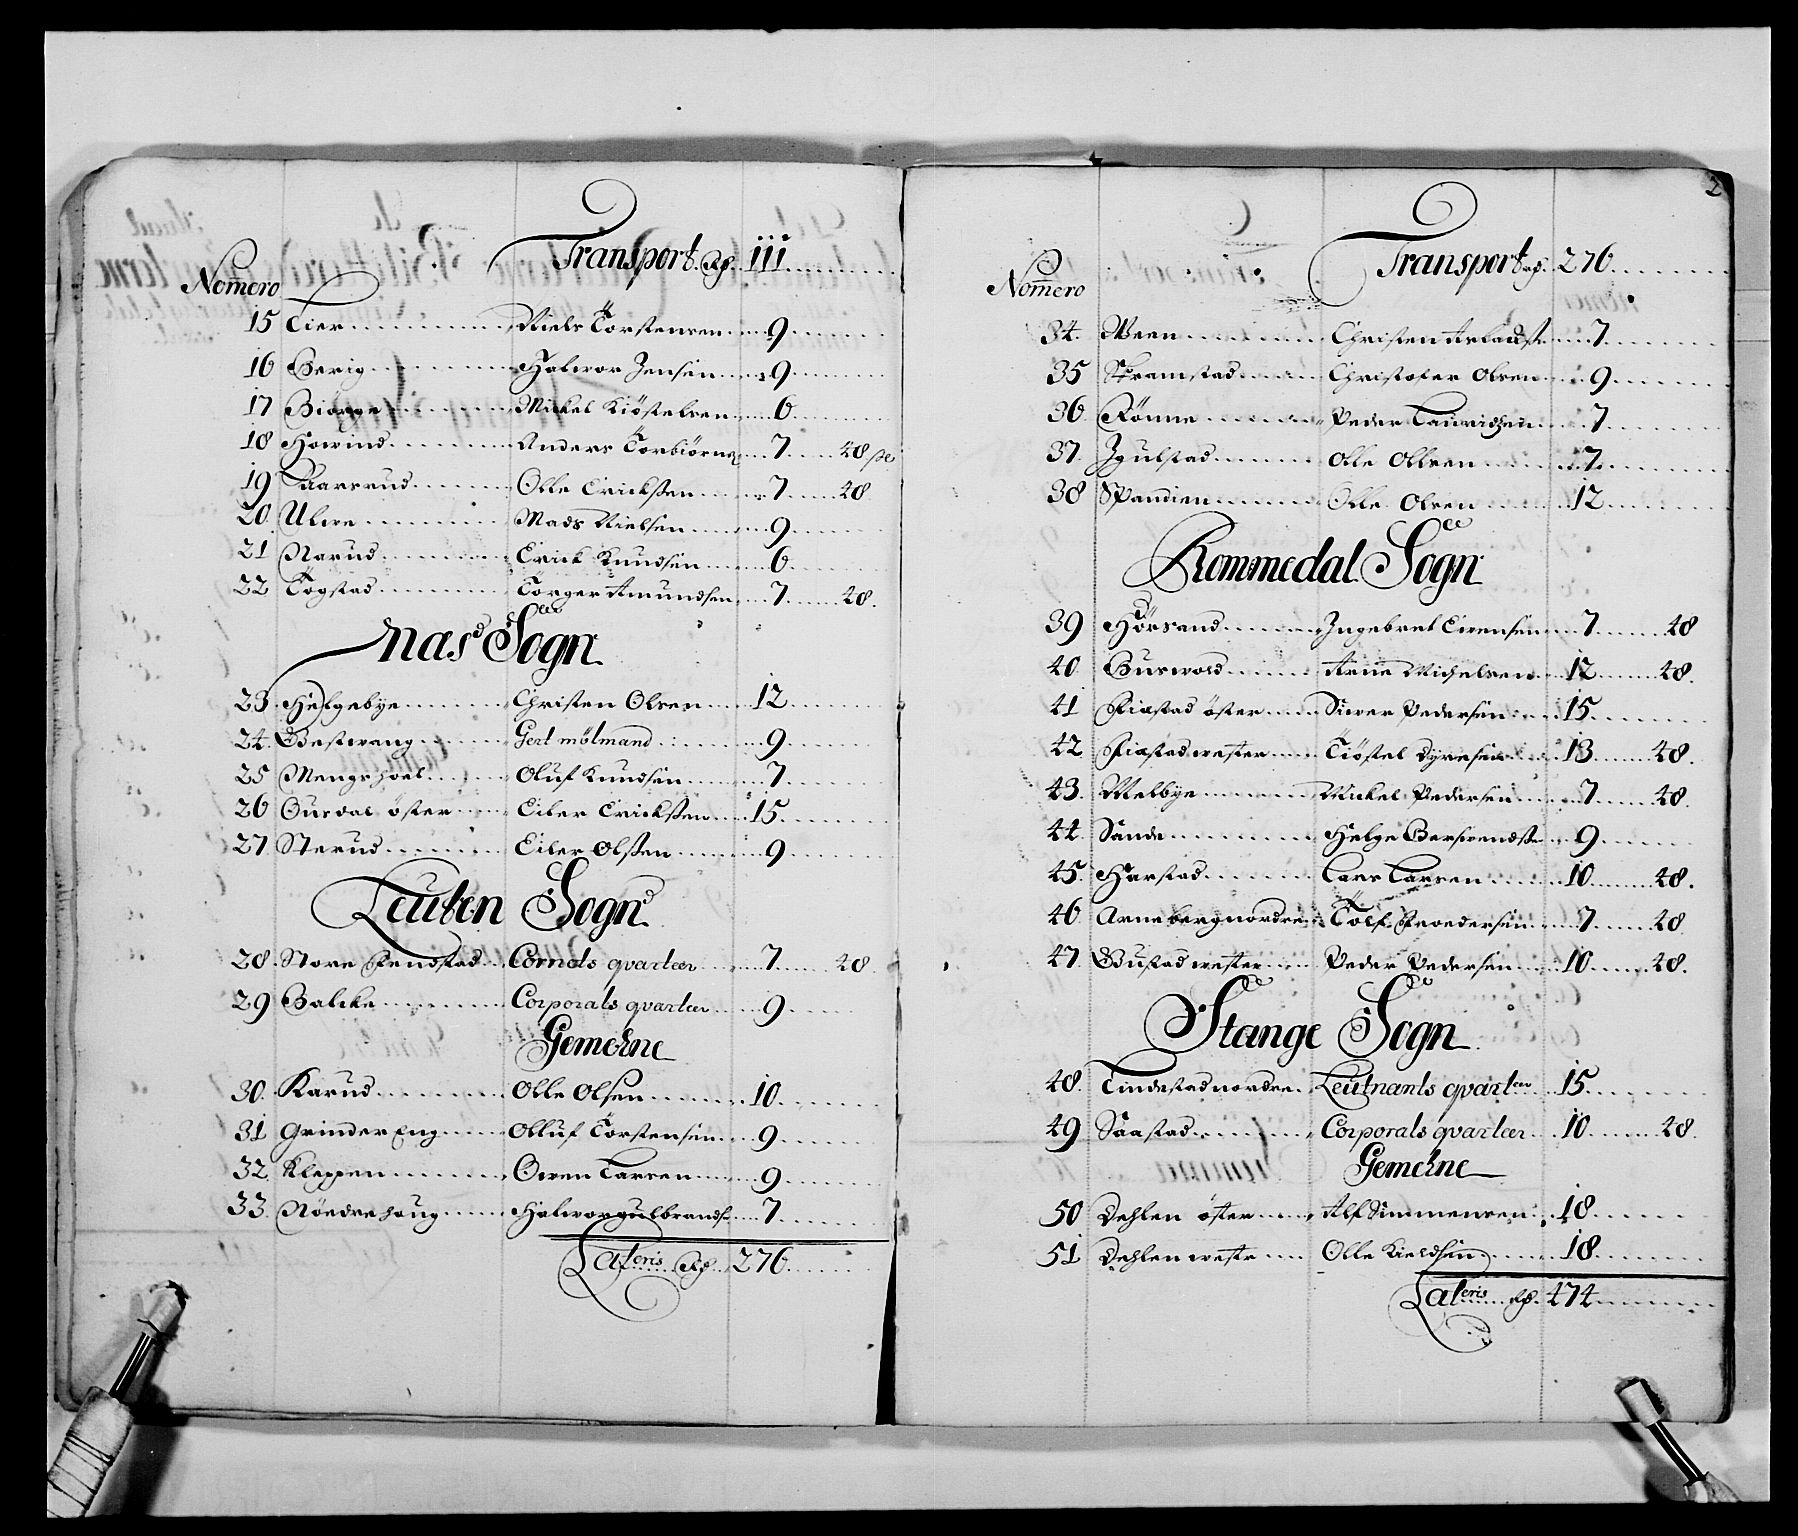 Transport Rf. 111
Nom̄ero
15 Lier Niels Torstensen 9
16 Berig Halwor Jensen 9
17 Biørge Mickel Kiöstelsen 6
18 Howind Anders Torbiörns 7 48
19 Aarsrud Olle Erickssen 7 48
20 Ulwe Mads Nielsen 9
21 Narud Erick Knudsen 6
22 Togstad Torger Amundsen 7 48
Nas Sogn
23 Helgebye Christen Olsen 12
24 Bestwang Gert mölmand 9
25 Mengshoel Oluf Knudsen 7
26 Dursdal öster Eiler Erickssen 15
27 Sterud Eiler Olssen 9
Leuten Sogn
28 Store Fendstad Cornets qvarteer 7 48
29 Balcke Corporals qvarteer 9
Gemeene
30 Karud Olle Olsen 10
31 Grinder Eng Olluf Torstensen 9
32 Kleppen Owen Larsen 9
33 Nöedre houg Halwor gulbrands 7
Lateris Rf. 276
2
Transport Rf. 276
Nom̄ero
34 Ween Christen Arladst 7
35 Skramstad Christofer Olsen 9
36 Rönne Peder Lauridzen 7
37 Jgulstad Olle Ollsen 7
38 Spandien Olle Olsen 12
Rommedal Sogn
39 Hörsand Jngebret Ewensen 7 48
40 Burwold Arne Michelsen 12 48
41 Fiæstad öster Siwer Pedersen 15
42 Fiæstad wester Tiöstel Dyresen 13 48
43 Melbye Mickel Pedersen 7 48
44 Sande Helge Berswendss 9
45 Harstad Lars Larsen 10 48
46 Arneberg nordre Tolf Froedersen 7 48
47 Bustad wester Peder Pedersen 10 48
Stange Sogn
48 Lindestad nordre Leutnants qvarteer 15
49 Saastad Corporals qvarteer 10 48
Gemeene
50 Dehlen öster Alf Simmensen 18
51 Dehlen westr Olle Kieldsen 18
Lateris Rf. 474